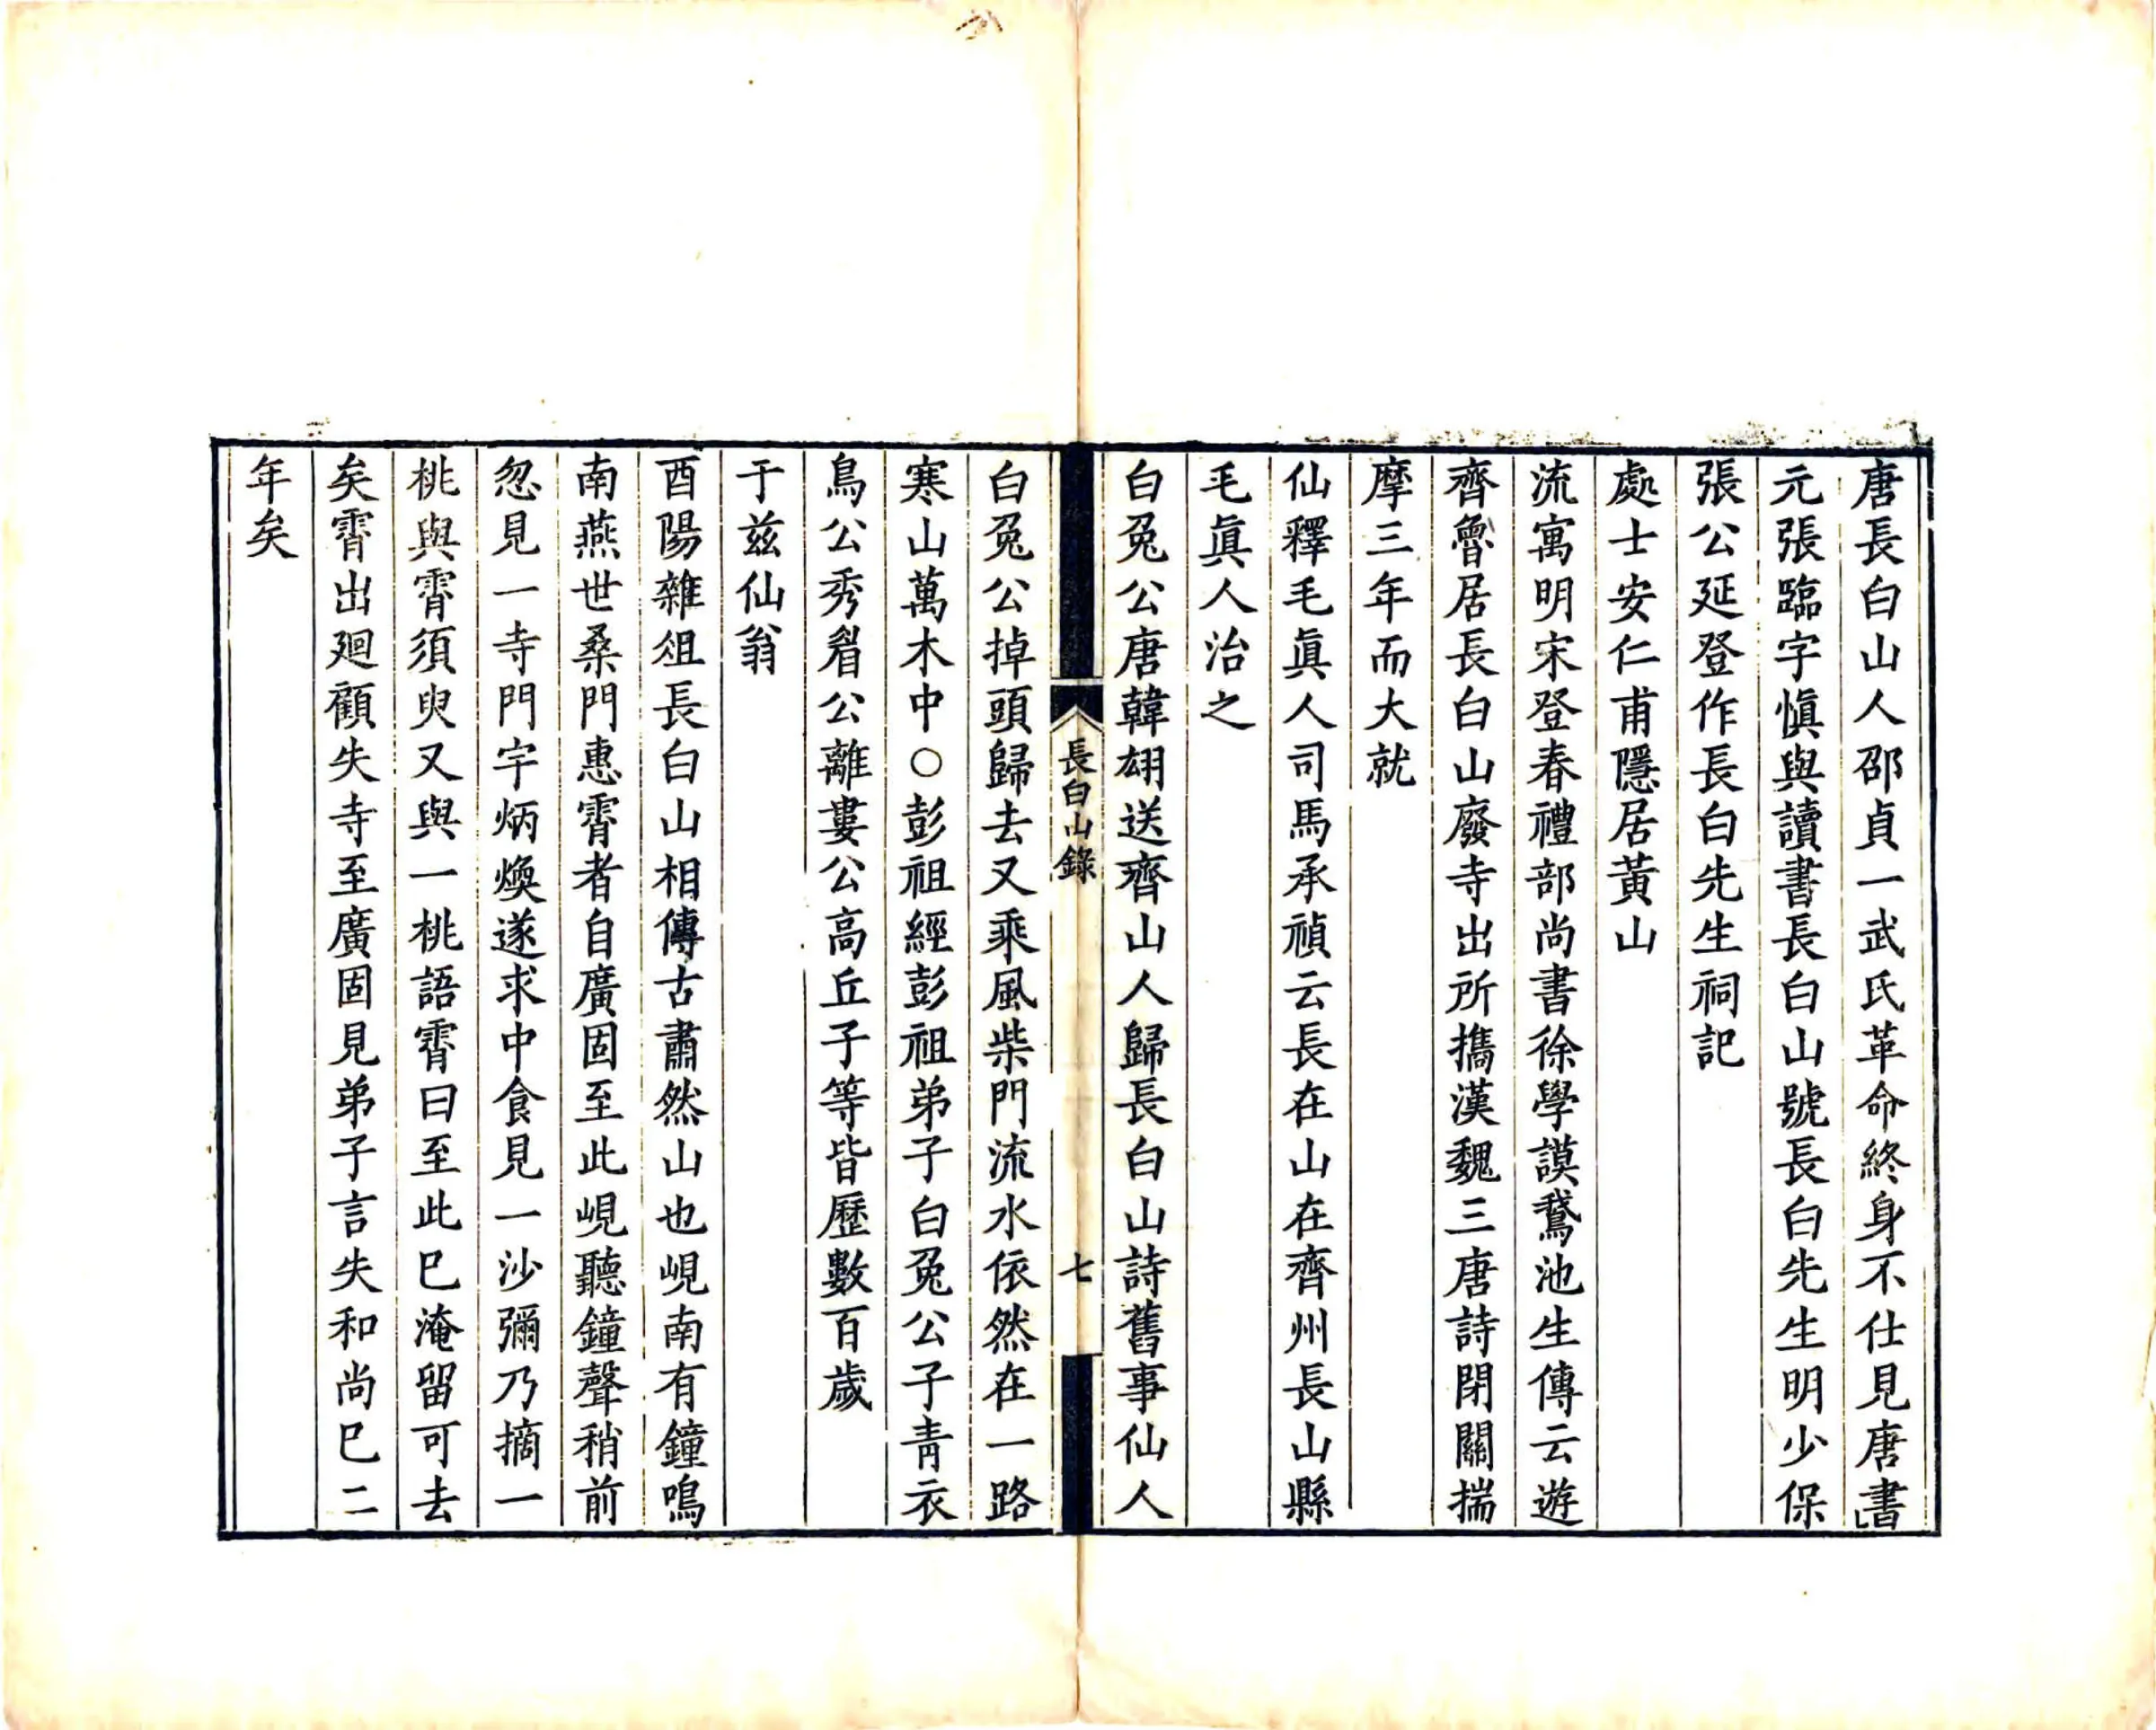 唐長白山人邵貞一武氏革命終身不仕見唐書
元張臨字慎與讀書長白山號長白先生明少保
張公延登作長白先生祠記
處士安仁甫隱居黃山
流寓明宋登春禮部尚書徐學謨鵞池生傳云遊
齊魯居長白山廢寺出所攜漢魏三唐詩閉關揣
摩三年而大就
仙釋毛眞人司馬承禎云長在山在齊州長山縣
毛眞人治之
白兔公唐韓翃送齊山人歸長白山詩舊事仙人
長白山錄
七
白兔公掉頭歸去又乘風柴門流水依然在一路
寒山萬木中○彭祖經彭祖弟子白兔公子青衣
鳥公秀眉公離婁公高丘子等皆歷數百歲
于兹仙翁
酉陽雜俎長白山相傳古肅然山也峴南有鐘鳴
南燕世桑門惠霄者自廣固至此峴聽鐘聲稍前
忽見一寺門宇炳煥遂求中食見一沙彌乃摘一
桃與霄須臾又與一桃語霄曰至此巳淹留可去
矣霄出廻顧失寺至廣固見弟子言失和尚巳二
年矣